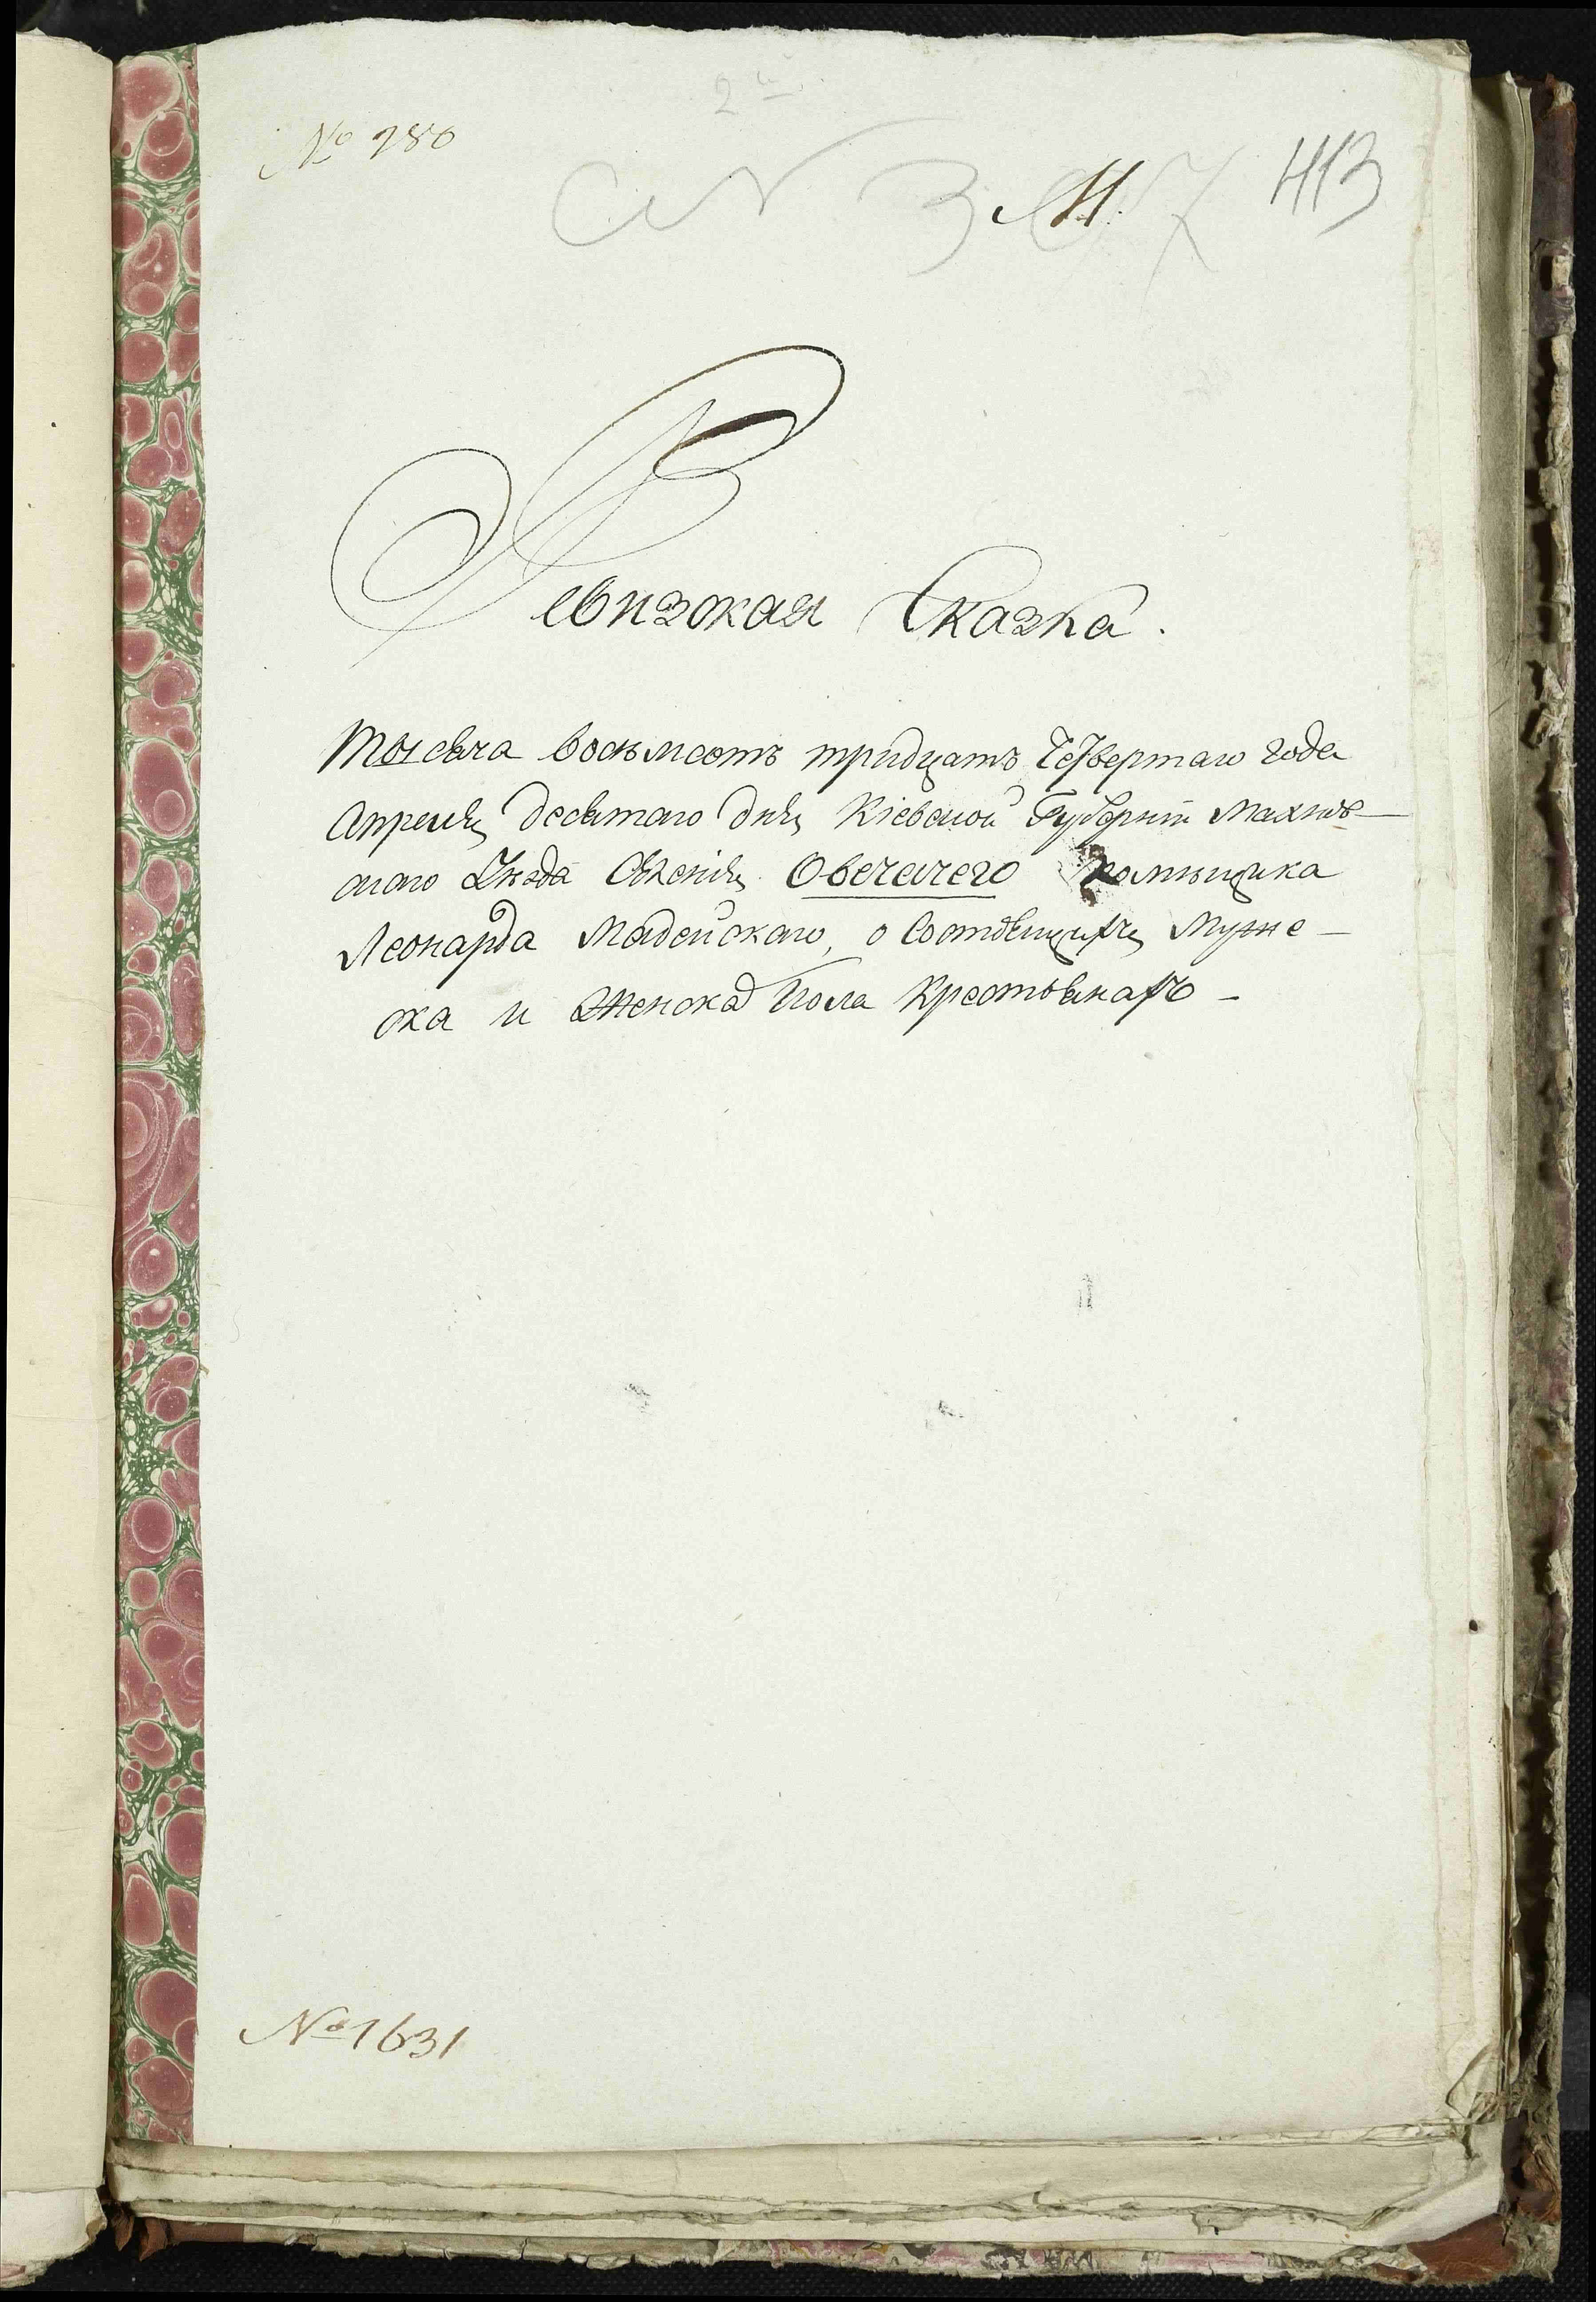 2й
№ 280
413
Ревизкая Сказка.
Тысяча восьмсотъ тридцать Четвертаго года
Апреля десятаго дня Кіевской Губерніи Махнов-
скаго Уезда Селенія Овечачего помещика
Леонарда Мадейскаго, о состоящихъ Муже-
ска и Женска Пола Крестьянахъ -
№ 1631